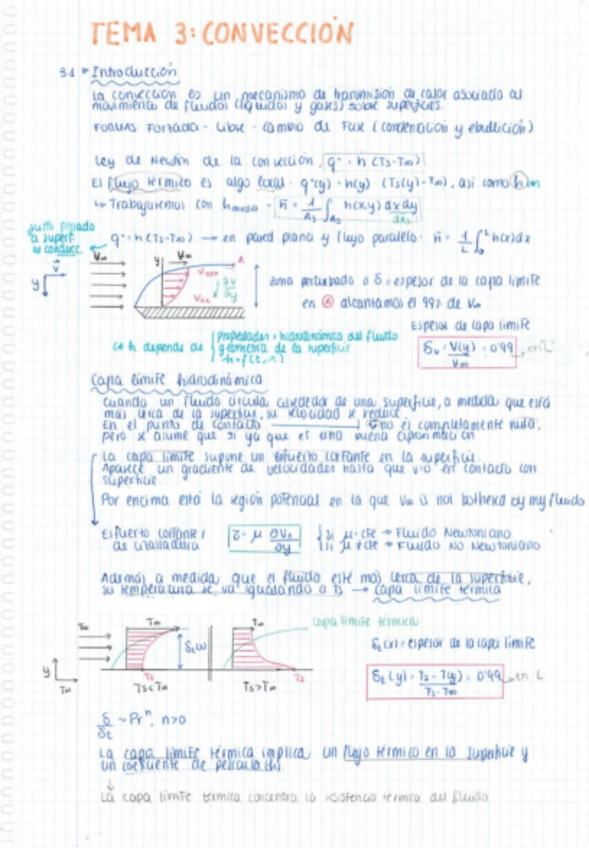 TEMA 3: CONVECCIÓN
3.1 Introducción
La convección es un mecanismo de transmisión de calor asociado al
movimiento de fluidos (líquidos y gases) sobre superficies.
FORMAS Forzada - Libre - Cambio de Fase (condensación y ebullición)
Ley de Newton de la convección, q" = h (Ts-T∞)
El flujo térmico es algo local. q"(y) = h(y) · (Ts(y) - T∞), así como h
↳ Trabajaremos con h media = h̄ = 1/As ∫As h(x,y) dx dy
dAs
justo pegado
a superf.
es conducc.
q" = h (Ts-T∞) → en pared plana y flujo paralelo. h̄ = 1/L ∫₀ᴸ h(x)dx
V∞
V∞
A
y
V
∂v
∂y
zona perturbada o δ = espesor de la capa límite
en Ⓐ alcantamos el 99% de V∞
Espesor de capa límite
δv · V(y)/V∞ = 0'99 en L
h depende de
propiedades + hidrodinámica del fluido
geometría de la superficie
Capa límite hidrodinámica
Cuando un fluido circula alrededor de una superficie, a medida que está
más cerca de la superficie, su velocidad se reduce.
En el punto de contacto no es completamente nula,
pero se asume que sí ya que es una buena aproximación
La capa límite supone un esfuerzo cortante en la superficie.
Aparece un gradiente de velocidades hasta que v=0 en contacto con
superficie.
Por encima está la región potencial en la que V∞ is not bothered by my fluido
Esfuerzo cortante
de cizalladura
τ = μ ∂Vx/∂y
si μ = cte → Fluido Newtoniano
si μ ≠ cte → Fluido No Newtoniano
Además a medida que el fluido esté más cerca de la superficie,
su temperatura se va igualando a Ts → capa límite térmica
T∞
T∞
capa límite térmica
y
T∞
δt(x)
Ts
Ts<T∞
Ts
Ts>T∞
δt(x) = espesor de la capa límite
δt(y) = Ts - T(y)/Ts - T∞ = 0'99 en L
δ/δt ~ Prⁿ, n>0
La capa límite térmica implica un flujo térmico en la superficie y
un coeficiente de película (h).
↓
La capa límite térmica concentra la resistencia térmica del fluido